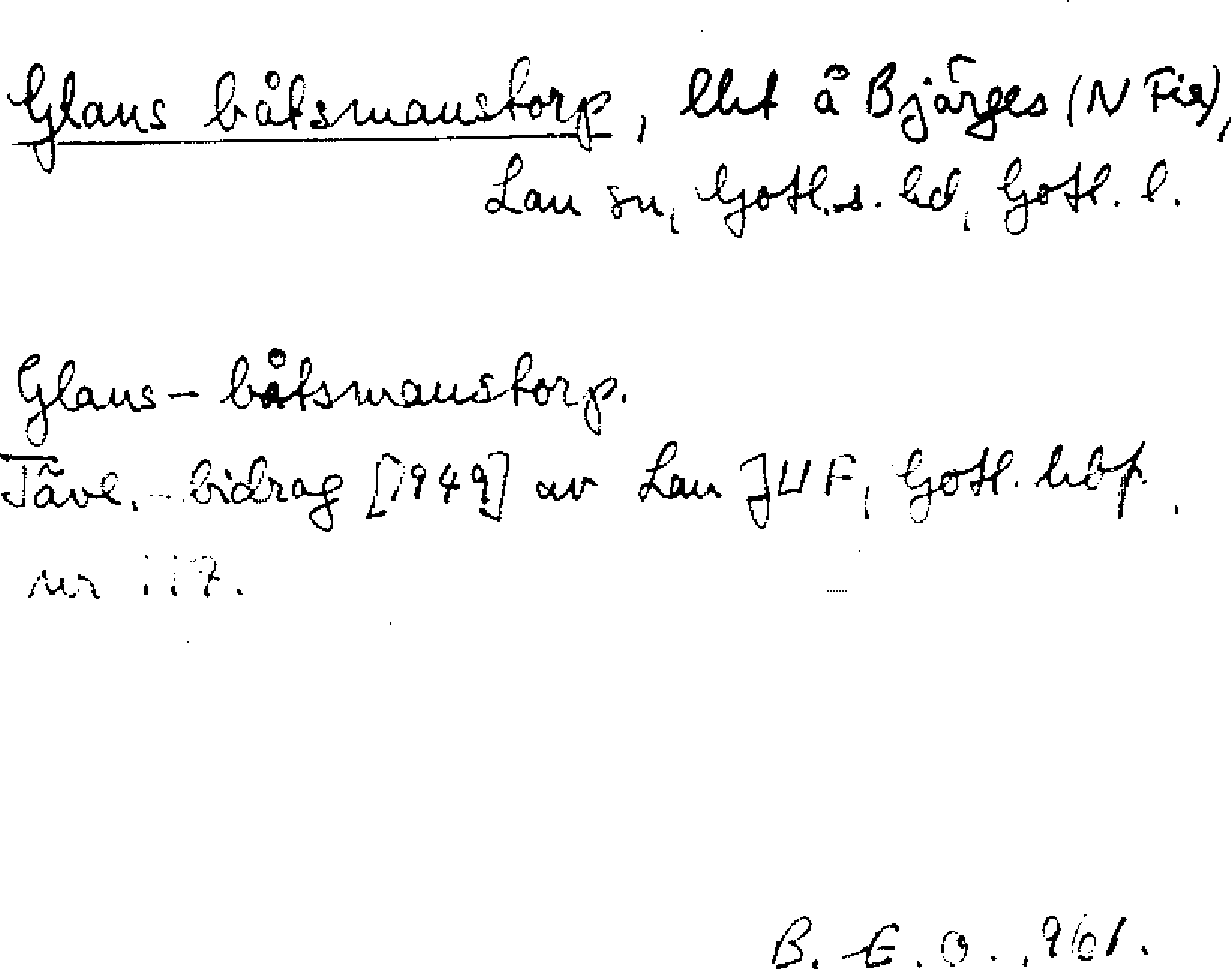 Glans båtsmanstorp, lht å Bjärges (N Fie),
Lau sn, Gotl.s. hd, Gotl. l.
Glans-båtsmanstorp.
Tävl.-bidrag [1949] av Lau JUF, Gotl. hbf.
nr 117.
B. E. O. 1961.